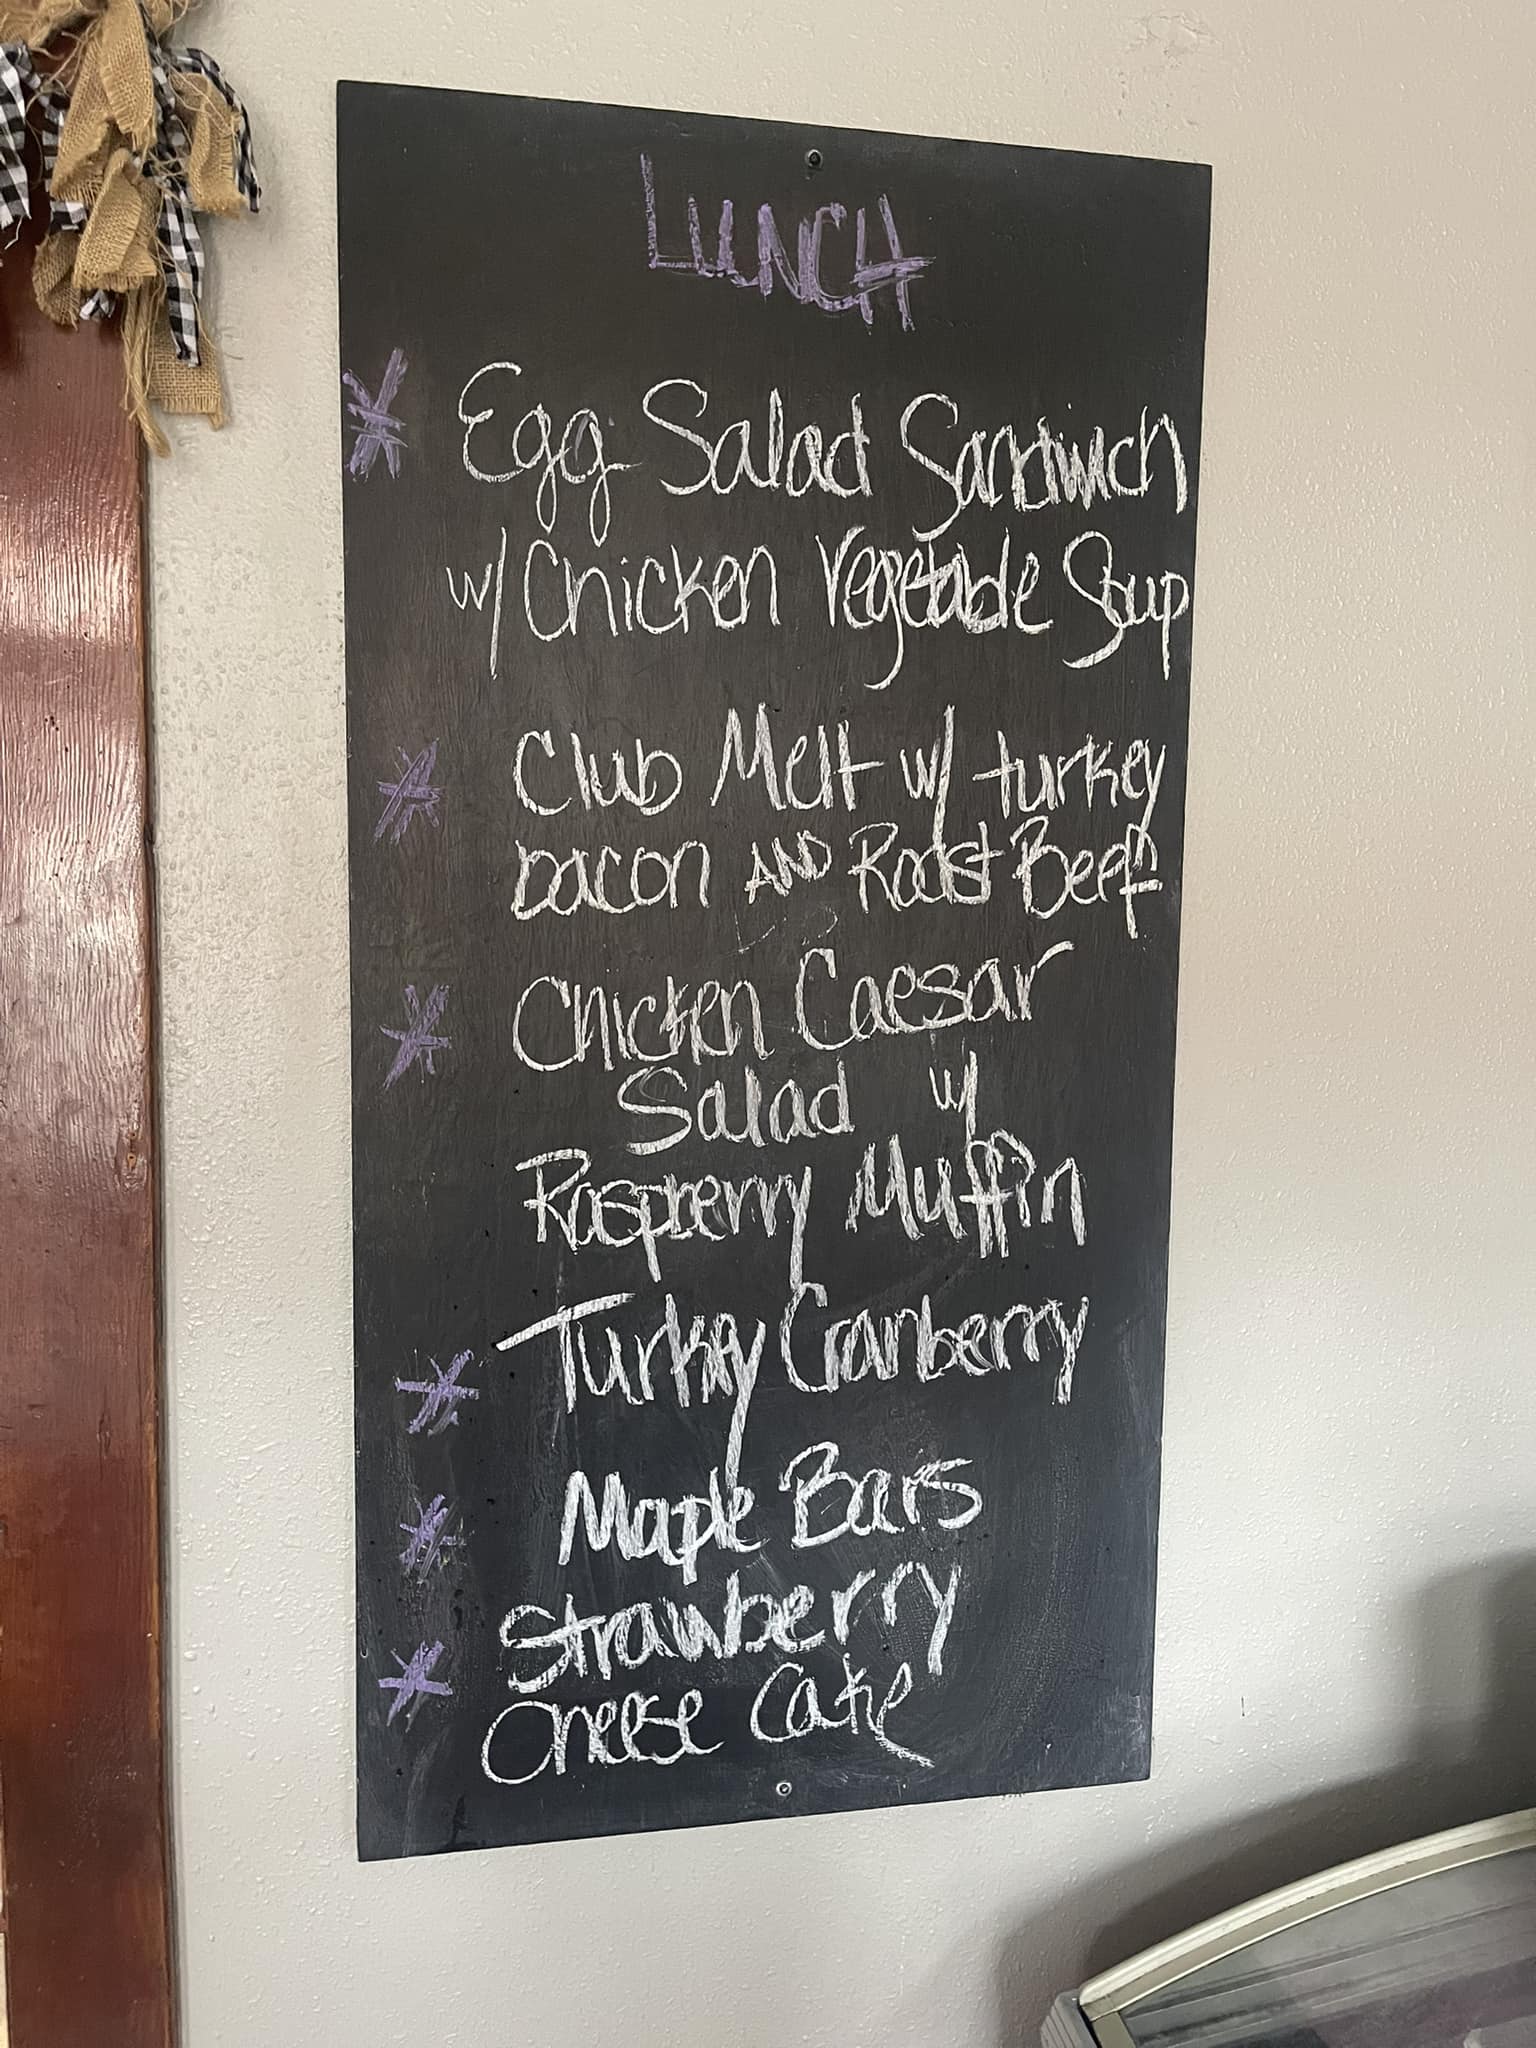 LUNCH
* Egg Salad Sandwich
w/ Chicken Vegetable Soup
* Club Melt w/ turkey
bacon AND Roast Beef
* Chicken Caesar
Salad w/
Raspberry Muffin
* Turkey Cranberry
* Maple Bars
Strawberry
* Cheese Cake